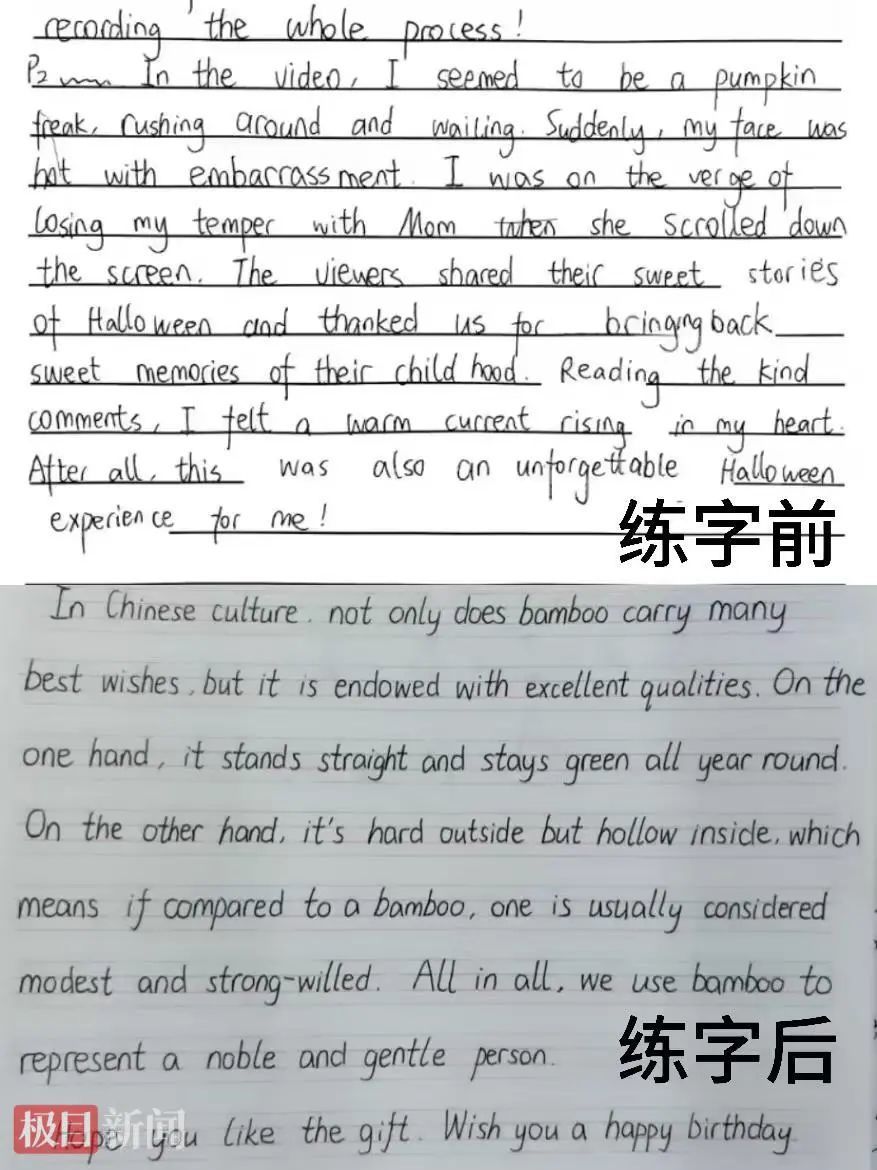 recording the whole process!
P2 In the video, I seemed to be a pumpkin
freak, rushing around and wailing. Suddenly, my face was
hot with embarrassment. I was on the verge of
losing my temper with Mom when she scrolled down
the screen. The viewers shared their sweet stories
of Halloween and thanked us for bringing back
sweet memories of their child hood. Reading the kind
comments, I felt a warm current rising in my heart.
After all, this was also an unforgettable Halloween
experience for me!
练字前
In Chinese culture, not only does bamboo carry many
best wishes, but it is endowed with excellent qualities. On the
one hand, it stands straight and stays green all year round.
On the other hand, it's hard outside but hollow inside, which
means if compared to a bamboo, one is usually considered
modest and strong-willed. All in all, we use bamboo to
represent a noble and gentle person.
练字后
Hope you like the gift. Wish you a happy birthday.
极目新闻